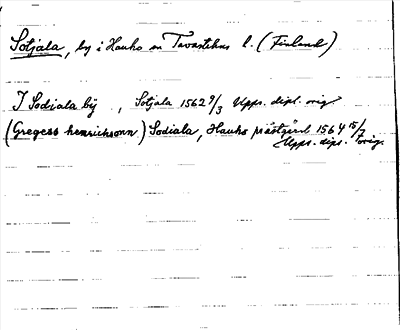 Sotjala, by i Hauho sn Tavastehus l. (Finland)
I Sodiala by , Sotjala 1562 9/3 Upps. dipl. orig
(Gregers henrichsonn) Sodiala, Hauho prästgård 1564 15/7
Upps. dipl. orig.